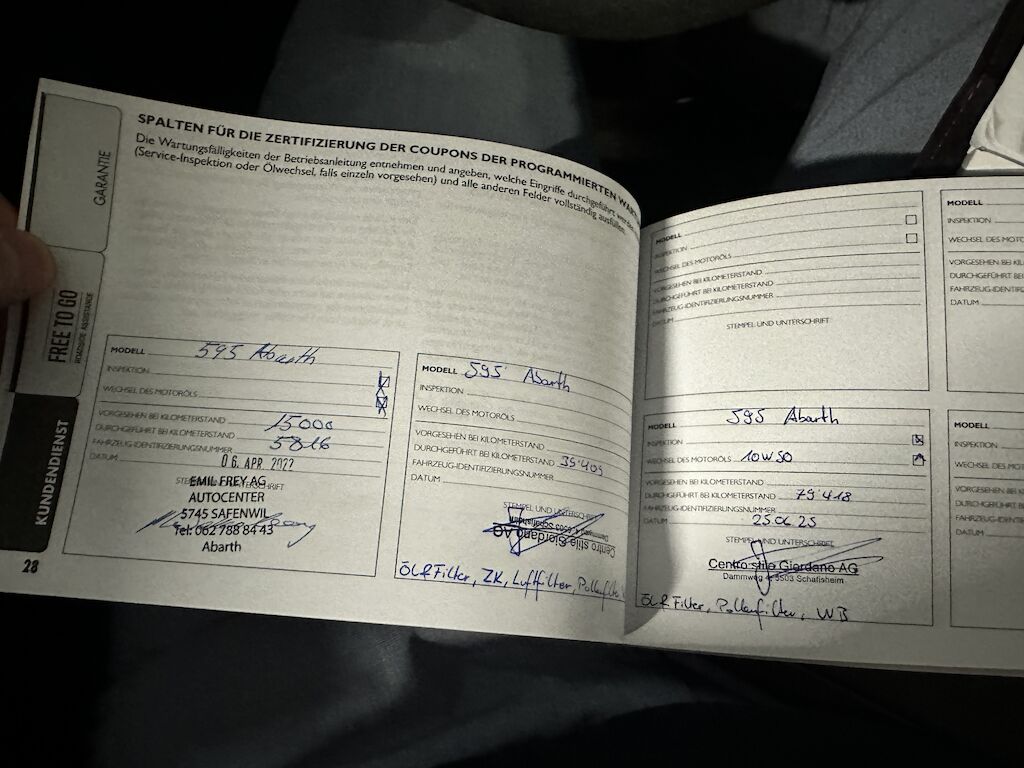 GARANTIE
FREE TO GO
ROADSIDE ASSISTANCE
KUNDENDIENST
28
SPALTEN FÜR DIE ZERTIFIZIERUNG DER COUPONS DER PROGRAMMIERTEN
Die Wartungsfälligkeiten der Betriebsanleitung entnehmen und angeben, welche Eingriffe durchgeführt
(Service-Inspektion oder Ölwechsel, falls einzeln vorgesehen) und alle anderen Felder vollständig ausfüllen.
MODELL 595 Abarth
INSPEKTION
WECHSEL DES MOTORÖLS
VORGESEHEN BEI KILOMETERSTAND 15000
DURCHGEFÜHRT BEI KILOMETERSTAND 5816
FAHRZEUG-IDENTIFIZIERUNGSNUMMER
DATUM 06. APR. 2022
EMIL FREY AG
AUTOCENTER
5745 SAFENWIL
Tel: 062 788 84 43
Abarth
MODELL 595 Abarth
INSPEKTION
WECHSEL DES MOTORÖLS
VORGESEHEN BEI KILOMETERSTAND
DURCHGEFÜHRT BEI KILOMETERSTAND 39'409
FAHRZEUG-IDENTIFIZIERUNGSNUMMER
DATUM
STEMPEL UND UNTERSCHRIFT
Centro stile Giordano AG
ÖL&Filter, ZK, Luftfilter,
MODELL
INSPEKTION
WECHSEL DES MOTORÖLS
VORGESEHEN BEI KILOMETERSTAND
DURCHGEFÜHRT BEI KILOMETERSTAND
FAHRZEUG-IDENTIFIZIERUNGSNUMMER
DATUM
STEMPEL UND UNTERSCHRIFT
MODELL 595 Abarth
INSPEKTION
WECHSEL DES MOTORÖLS 10W50
VORGESEHEN BEI KILOMETERSTAND
DURCHGEFÜHRT BEI KILOMETERSTAND 79'418
FAHRZEUG-IDENTIFIZIERUNGSNUMMER
DATUM
STEMPEL UND UNTERSCHRIFT
Centro stile Giordano AG
Dammweg 5503 Schafisheim
ÖL&Filter, Pollenfilter, WB
MODELL
INSPEKTION
WECHSEL DES MOTO
VORGESEHEN BEI KIL
DURCHGEFÜHRT BEI K
FAHRZEUG-IDENTIFIZ
DATUM
MODELL
INSPEKTION
WECHSEL DES MOT
VORGESEHEN BEI KI
DURCHGEFÜHRT BEI
FAHRZEUG-IDENTIFI
DATUM